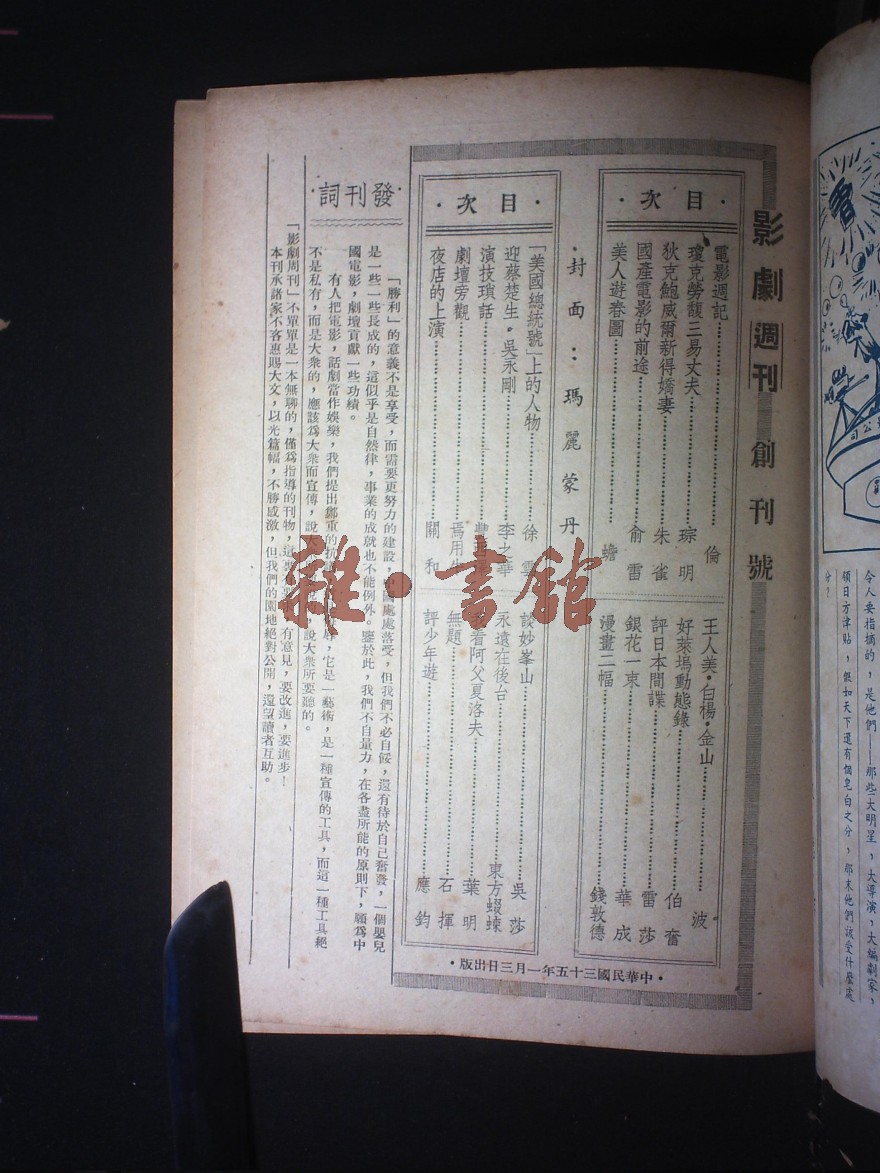 影劇週刊 創刊號
·目次·
電影週記 倫
瓊克勞馥三易丈夫 琮明
狄克鮑威爾新得嬌妻 朱雀
國產電影的前途 俞雷
美人遊春圖 蟾
王人美·白楊·金山 波
好萊塢動態錄 伯奮
評日本間諜 雷莎
銀花一束 華成
漫畫二幅 錢敦德
·封面：瑪麗蒙丹
·目次·
「美國總統號」上的人物 徐
迎蔡楚生·吳永剛 李之華
演技瑣話
劇壇旁觀 焉用
夜店的上演 關和
談妙峯山 吳莎
永遠在後台 東方蝃蝀
我看阿父夏洛夫 葉明
無題 石揮
評少年遊 應鈞
·中華民國三十五年一月三日出版·
·發刊詞·
「勝利」的意義不是享受，而需要更努力的建設，中國處處落受，但我們不必自餒，還有待於自己奮發，一個嬰兒
是一些一些長成的，這似乎是自然律，事業的成就也不能例外。鑒於此，我們不自量力，在各盡所能的原則下，願爲中
國電影，劇壇貢獻一些功績。
有人把電影，話劇當作娛樂，我們提出鄭重的抗，它是一藝術，是一種宣傳的工具，而這一種工具絕
不是私有，而是大衆的，應該爲大衆而宣傳，說大說大衆所要聽的。
「影劇周刊」不單單是一本無聊的，僅爲指導的刊物，這要有意見，要改進，要進步！
本刊承諸家不吝惠賜大文，以光篇幅，不勝感激，但我們的園地絕對公開，還望讀者互助。
雜·書館
公司
令人要指摘的，是他們——那些大明星，大導演，大編劇家，
領日方津貼，假如天下還有個皂白之分，那末他們該受什麼處
分？